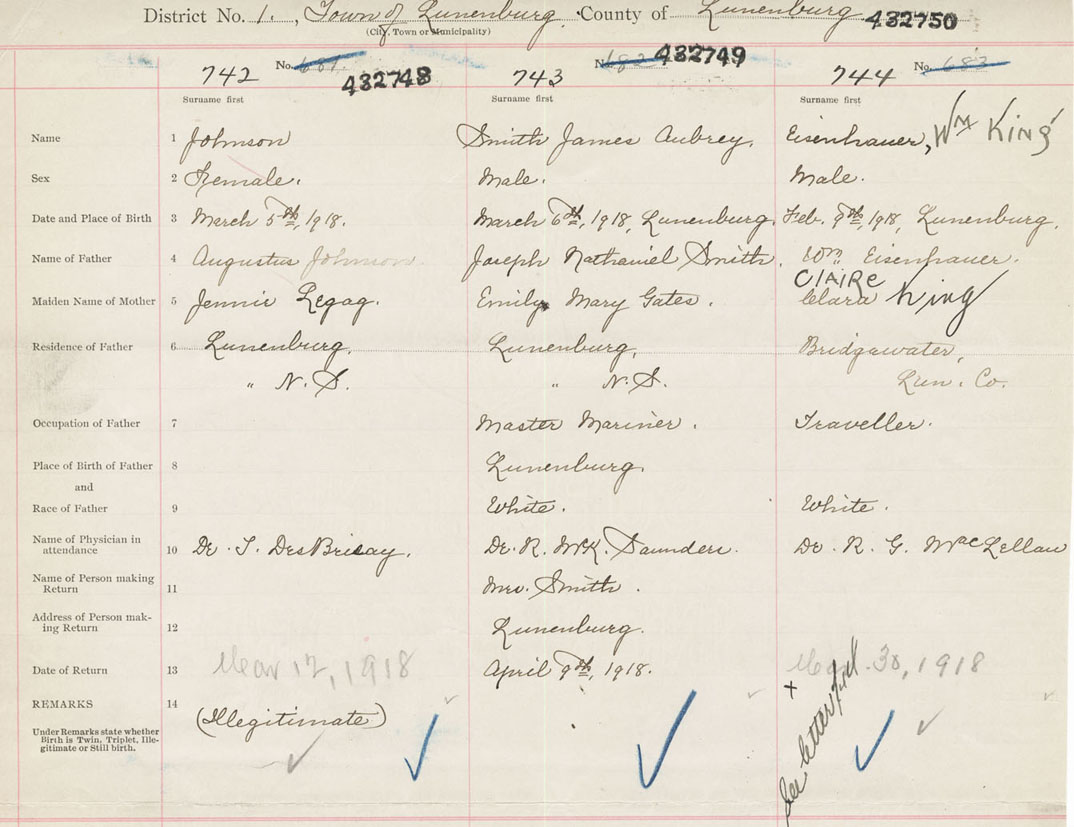 District No. 1., Town of Lunenburg. County of Lunenburg 432750
(City, Town or Municipality)
742 No. 681. 432748 743 No. 682 432749 744 No. 683
Surname first Surname first Surname first
Name 1 Johnson Smith James Aubrey. Eisenhauer, Wm King
Sex 2 Female. Male. Male.
Date and Place of Birth 3 March 5th, 1918. March 6th, 1918, Lunenburg. Feb. 9th, 1918, Lunenburg.
Name of Father 4 Augustus Johnson. Joseph Nathaniel Smith. Wm. Eisenhauer.
CLAIRE
Maiden Name of Mother 5 Jennie Legag. Emily Mary Gates. Clara King
Residence of Father 6 Lunenburg, Lunenburg, Bridgewater,
" N.S. " N.S. Lun. Co.
Occupation of Father 7 Master Mariner. Traveller.
Place of Birth of Father 8 Lunenburg.
and
Race of Father 9 White. White.
Name of Physician in
attendance 10 Dr. T. DesBrisay. Dr. R. McK. Saunders. Dr. R. G. MacLellan
Name of Person making
Return 11 Mrs. Smith.
Address of Person mak-
ing Return 12 Lunenburg.
Date of Return 13 Mar 12, 1918 April 9th, 1918. March 30, 1918
REMARKS 14 (Illegitimate)
Under Remarks state whether
Birth is Twin, Triplet, Ille-
gitimate or Still birth.
See letter filed